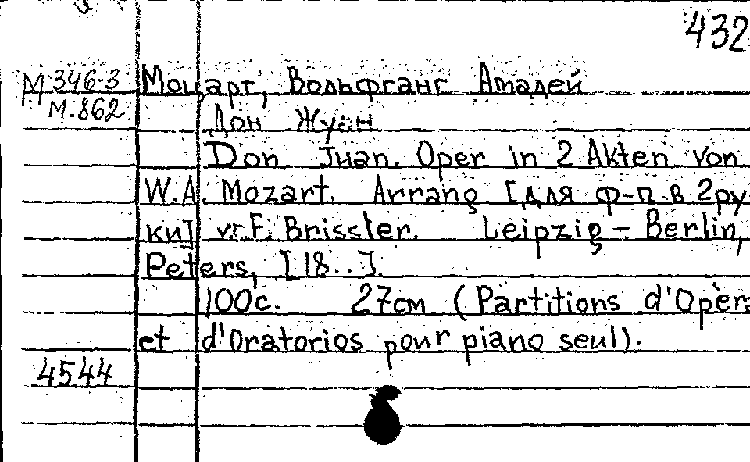 432
М 346-3
М.862
Моцарт, Вольфганг Амадей
Дон Жуан
Don Juan. Oper in 2 Akten von
W.A. Mozart. Arrang [для ф-п. в 2 ру
ки] v. F. Brissler. Leipzig – Berlin,
Peters, [18..].
100с. 27см (Partitions d'Oper
et d'Oratorios pour piano seul).
4544